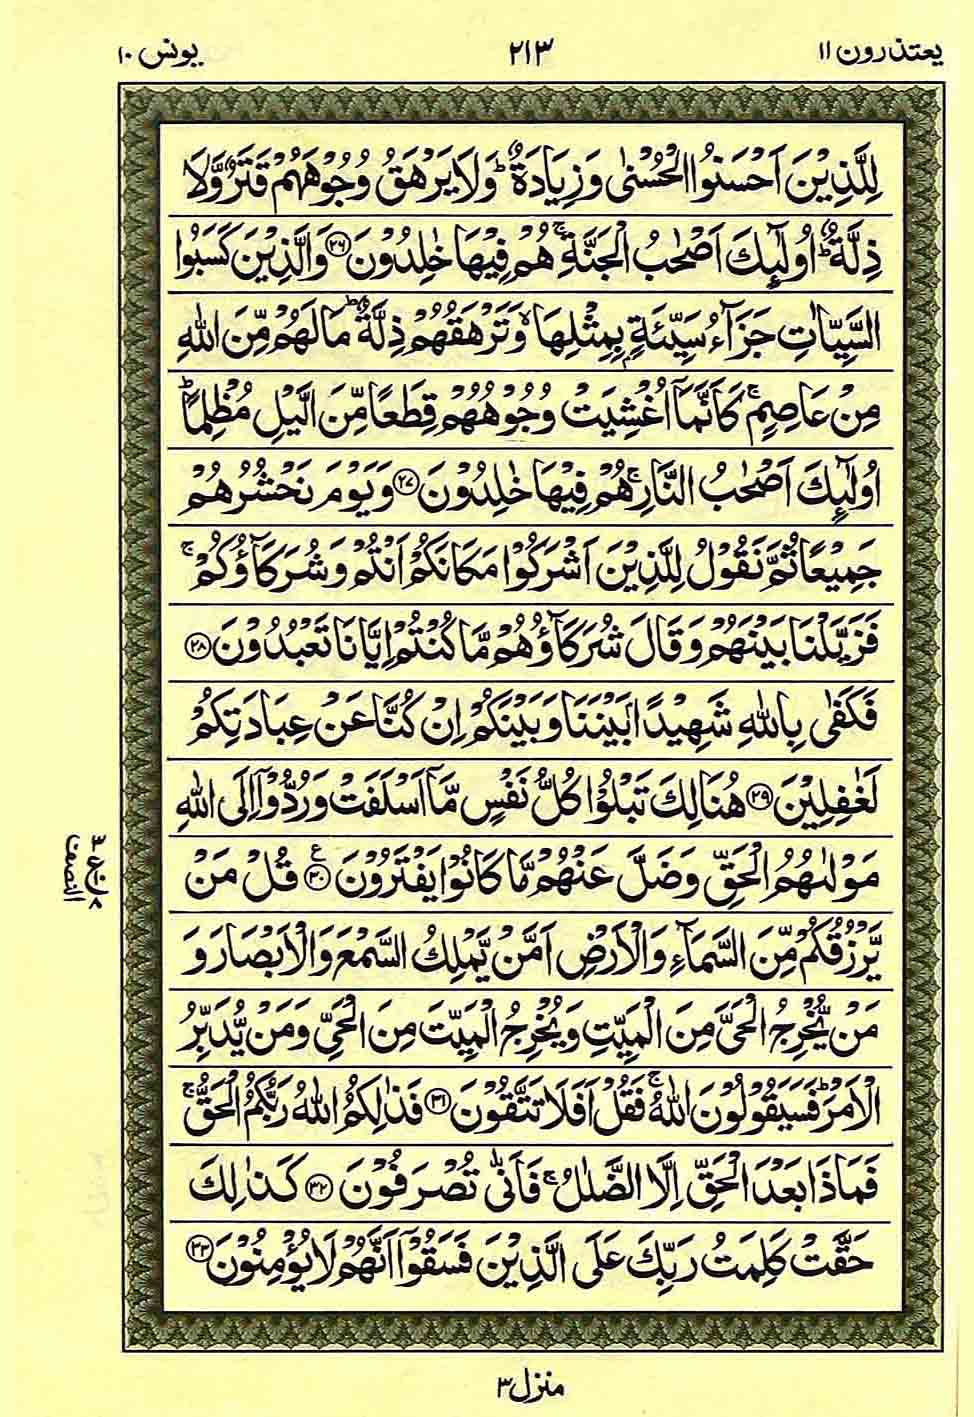 یعتذرون ۱۱
۲۱۳
یونس ۱۰
لِلَّذِیْنَ اَحْسَنُوا الْحُسْنٰی وَ زِیَادَةٌ ؕ وَلَا یَرْهَقُ وُجُوْهَهُمْ قَتَرٌ وَّلَا
ذِلَّةٌ ؕ اُولٰٓئِكَ اَصْحٰبُ الْجَنَّةِ ۚ هُمْ فِیْهَا خٰلِدُوْنَ ۲۶ وَالَّذِیْنَ كَسَبُوا
السَّیِّاٰتِ جَزَآءُ سَیِّئَةٍۭ بِمِثْلِهَا ۙ وَتَرْهَقُهُمْ ذِلَّةٌ ؕ مَا لَهُمْ مِّنَ اللّٰهِ
مِنْ عَاصِمٍ ۚ كَاَنَّمَاۤ اُغْشِیَتْ وُجُوْهُهُمْ قِطَعًا مِّنَ الَّیْلِ مُظْلِمًا ؕ
اُولٰٓئِكَ اَصْحٰبُ النَّارِ ۚ هُمْ فِیْهَا خٰلِدُوْنَ ۲۷ وَیَوْمَ نَحْشُرُهُمْ
جَمِیْعًا ثُمَّ نَقُوْلُ لِلَّذِیْنَ اَشْرَكُوْا مَكَانَكُمْ اَنْتُمْ وَ شُرَكَآؤُكُمْ ۚ
فَزَیَّلْنَا بَیْنَهُمْ وَ قَالَ شُرَكَآؤُهُمْ مَّا كُنْتُمْ اِیَّانَا تَعْبُدُوْنَ ۲۸
فَكَفٰی بِاللّٰهِ شَهِیْدًۢا بَیْنَنَا وَ بَیْنَكُمْ اِنْ كُنَّا عَنْ عِبَادَتِكُمْ
لَغٰفِلِیْنَ ۲۹ هُنَالِكَ تَبْلُوْا كُلُّ نَفْسٍ مَّاۤ اَسْلَفَتْ وَرُدُّوْۤا اِلَی اللّٰهِ
مَوْلٰىهُمُ الْحَقِّ وَضَلَّ عَنْهُمْ مَّا كَانُوْا یَفْتَرُوْنَ ۳۰ ع قُلْ مَنْ
یَّرْزُقُكُمْ مِّنَ السَّمَآءِ وَالْاَرْضِ اَمَّنْ یَّمْلِكُ السَّمْعَ وَالْاَبْصَارَ وَ
مَنْ یُّخْرِجُ الْحَیَّ مِنَ الْمَیِّتِ وَیُخْرِجُ الْمَیِّتَ مِنَ الْحَیِّ وَمَنْ یُّدَبِّرُ
الْاَمْرَ ؕ فَسَیَقُوْلُوْنَ اللّٰهُ ۚ فَقُلْ اَفَلَا تَتَّقُوْنَ ۳۱ فَذٰلِكُمُ اللّٰهُ رَبُّكُمُ الْحَقُّ ۚ
فَمَاذَا بَعْدَ الْحَقِّ اِلَّا الضَّلٰلُ ۚ فَاَنّٰی تُصْرَفُوْنَ ۳۲ كَذٰلِكَ
حَقَّتْ كَلِمَتُ رَبِّكَ عَلَی الَّذِیْنَ فَسَقُوْۤا اَنَّهُمْ لَا یُؤْمِنُوْنَ ۳۳
النصف
منزل ۳